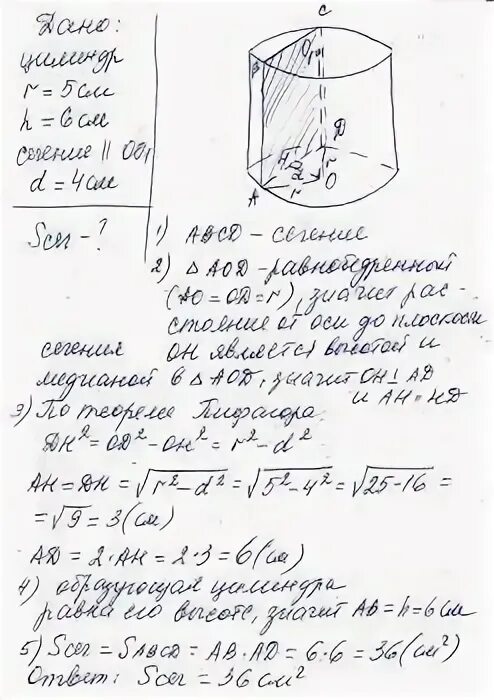 Дано:
цилиндр
r = 5 см
h = 6 см
сечение || OO₁
d = 4 см
Sсеч - ?
C
B
O₁
H
D
d
r
A
r
O
1) ABCD - сечение
2) △ AOD - равнобедренный
(AO = OD = r), значит рас-
стояние от оси до плоскости
сечения OH является высотой и
медианой в △ AOD, значит OH ⊥ AD
и AH = HD
3) По теореме Пифагора
DH² = OD² - OH² = r² - d²
AH = DH = √(r² - d²) = √(5² - 4²) = √(25 - 16) =
= √9 = 3 (см)
AD = 2 · AH = 2 · 3 = 6 (см)
4) образующая цилиндра
равна его высоте, значит AB = h = 6 см
5) Sсеч = SABCD = AB · AD = 6 · 6 = 36 (см²)
Ответ: Sсеч = 36 см²